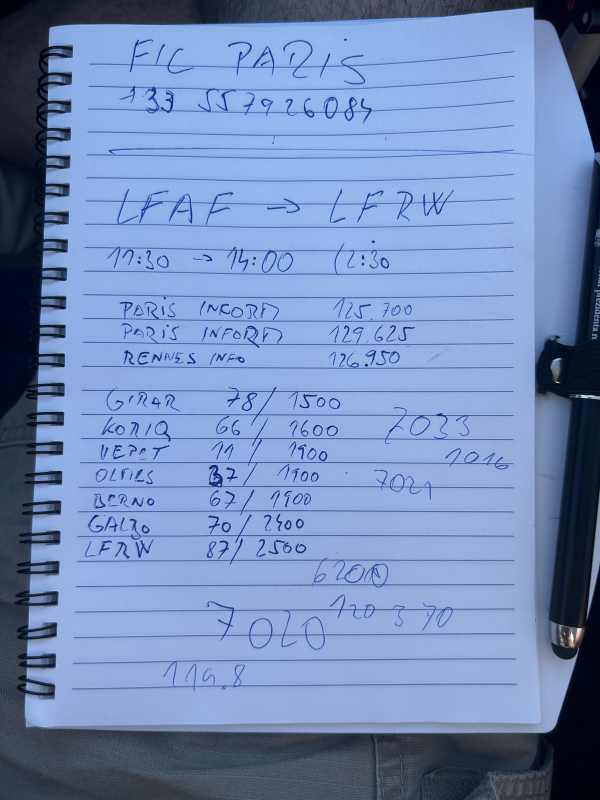 FIC PARIS
133 557926084
LFAF → LFRW
11:30 → 14:00 (2:30
PARIS INFORM 125.700
PARIS INFORM 129.625
RENNES INFO 126.950
GIRAR 78/1500
KORIQ 66/1600 7033
VEPET 11/1900 1016
37/1900 7021
BERNO 67/1900
GALBO 70/2400
LFRW 87/2500
6200
7020 120 370
119.8
prezidenta